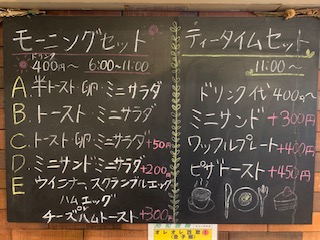 モーニングセット
ドリンク
400円〜 6:00~11:00
A. 半トースト・卵・ミニサラダ
B. トースト・ミニサラダ
C. トースト・卵・ミニサラダ+50円
D. ミニサンド・ミニサラダ+200円
E ウインナー、スクランブルエッグ
ハムエッグ
チーズハムトースト+300円
ティータイムセット
11:00〜
ドリンク代400円〜
ミニサンド+300円
ワッフルプレート+400円
ピザトースト+450円
オレオレ詐欺